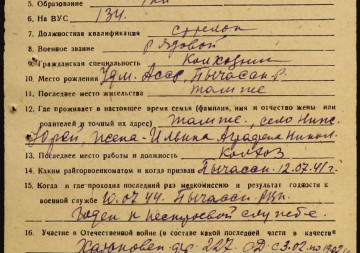 5. Образование
6. На ВУС 134.
7. Должностная квалификация стрелок
8. Военное звание рядовой
9. Гражданская специальность Колхозник
10. Место рождения Удм. Асср, Пычасск. р.
11. Последнее место жительства там же
12. Где проживает в настоящее время семья (фамилия, имя и отчество жены или
родителей и точный их адрес) там же, село
жена - Ильина
13. Последнее место работы и должность Колхоз
14. Каким райгорвоенкоматом и когда призван Пычасск. 12.07.41 г.
15. Когда и где проходил последний раз медкомиссию и результат годности к
военной службе 10.07.44. Пычасск. РВК.
Годен к нестроевой службе.
16. Участие в Отечественной войне (в составе какой последней части и в качестве
227. ОД с 3.02. по